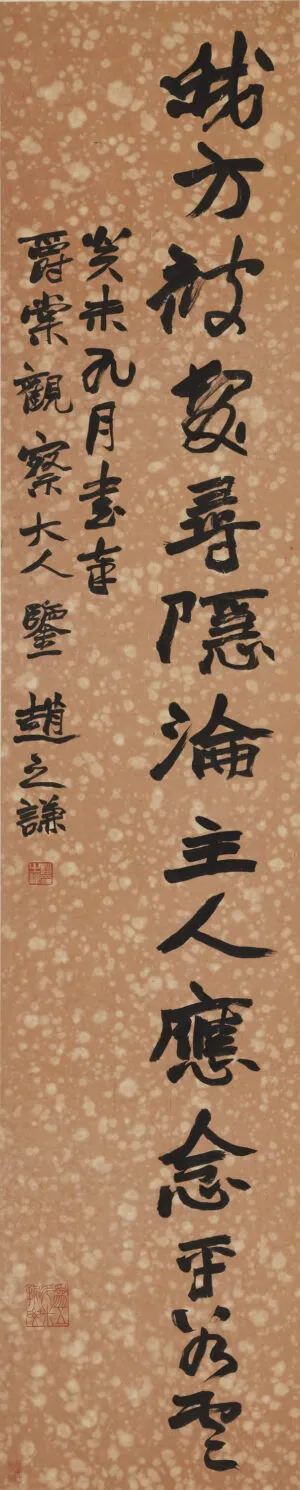 我方被尋隱淪主人應念平
癸未九月書奉
爵棠觀察大人鑒 趙之謙